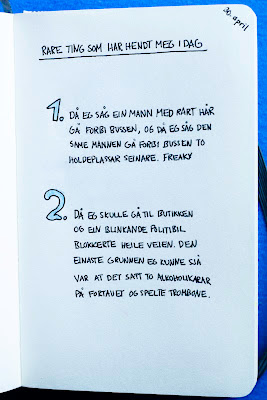 30. april
RARE TING SOM HAR HENDT MEG I DAG
1. DÅ EG SÅG EIN MANN MED RART HÅR
GÅ FORBI BUSSEN, OG DÅ EG SÅG DEN
SAME MANNEN GÅ FORBI BUSSEN TO
HOLDEPLASSAR SEINARE. FREAKY
2. DÅ EG SKULLE GÅ TIL BUTIKKEN
OG EIN BLINKANDE POLITIBIL
BLOKKERTE HEILE VEIEN. DEN
EINASTE GRUNNEN EG KUNNE SJÅ
VAR AT DET SATT TO ALKOHOLIKARAR
PÅ FORTAUET OG SPELTE TROMBONE.